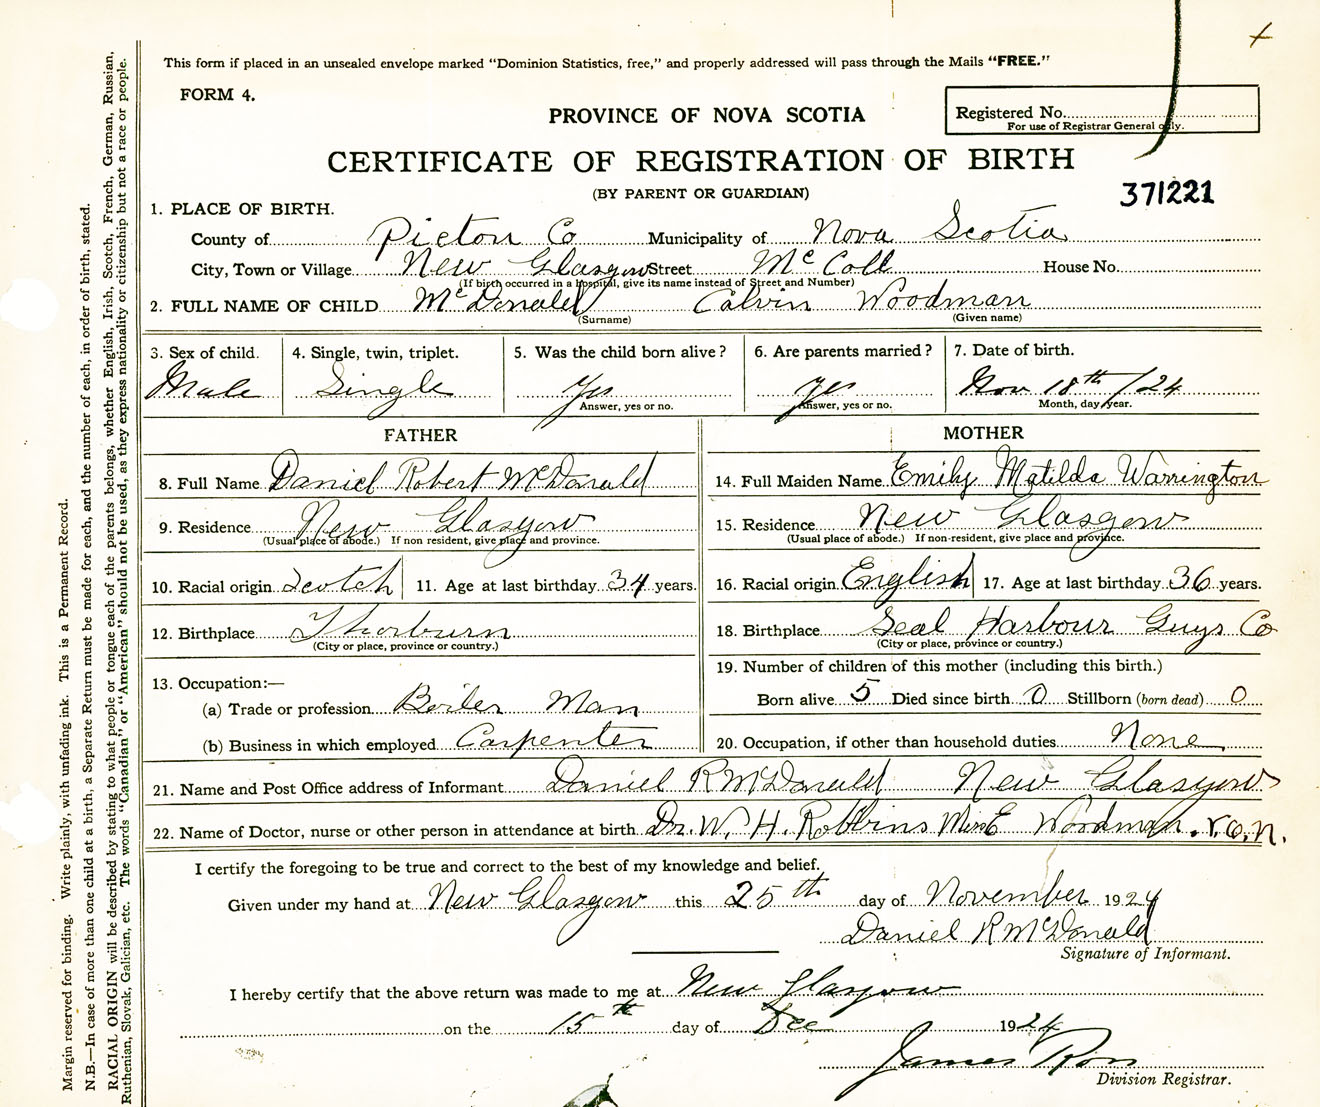 This form if placed in an unsealed envelope marked "Dominion Statistics, free," and properly addressed will pass through the Mails "FREE."
FORM 4.
PROVINCE OF NOVA SCOTIA
Registered No.
For use of Registrar General only.
CERTIFICATE OF REGISTRATION OF BIRTH
(BY PARENT OR GUARDIAN)
371221
1. PLACE OF BIRTH.
County of Pictou Co Municipality of Nova Scotia
City, Town or Village New Glasgow Street McColl House No.
(If birth occurred in a hospital, give its name instead of Street and Number)
2. FULL NAME OF CHILD McDonald Calvin Woodman
(Surname) (Given name)
3. Sex of child. 4. Single, twin, triplet. 5. Was the child born alive? 6. Are parents married? 7. Date of birth.
Male Single Yes Yes Nov 18th/24
Answer, yes or no. Answer, yes or no. Month, day, year.
FATHER MOTHER
8. Full Name Daniel Robert McDonald 14. Full Maiden Name Emily Matilda Warrington
9. Residence New Glasgow 15. Residence New Glasgow
(Usual place of abode.) If non resident, give place and province. (Usual place of abode.) If non-resident, give place and province.
10. Racial origin Scotch 11. Age at last birthday 34 years. 16. Racial origin English 17. Age at last birthday 36 years.
12. Birthplace Thorburn 18. Birthplace Seal Harbour Guys Co
(City or place, province or country.) (City or place, province or country.)
13. Occupation:— 19. Number of children of this mother (including this birth.)
(a) Trade or profession Boiler Man Born alive 5 Died since birth 0 Stillborn (born dead) 0
(b) Business in which employed Carpenter 20. Occupation, if other than household duties None
21. Name and Post Office address of Informant Daniel R McDonald New Glasgow
22. Name of Doctor, nurse or other person in attendance at birth Dr. W. H. Robbins Miss E Woodman. V.O.N.
I certify the foregoing to be true and correct to the best of my knowledge and belief.
Given under my hand at New Glasgow this 25th day of November 1924
Daniel R McDonald
Signature of Informant.
I hereby certify that the above return was made to me at New Glasgow
on the 15th day of Dec 1924
James Ross
Division Registrar.
Margin reserved for binding. Write plainly, with unfading ink. This is a Permanent Record.
N.B.—In case of more than one child at a birth, a Separate Return must be made for each, and the number of each, in order of birth, stated.
RACIAL ORIGIN will be described by stating to what people or tongue each of the parents belongs, whether English, Irish, Scotch, French, German, Russian,
Ruthenian, Slovak, Galician, etc. The words "Canadian" or "American" should not be used, as they express nationality or citizenship but not a race or people.